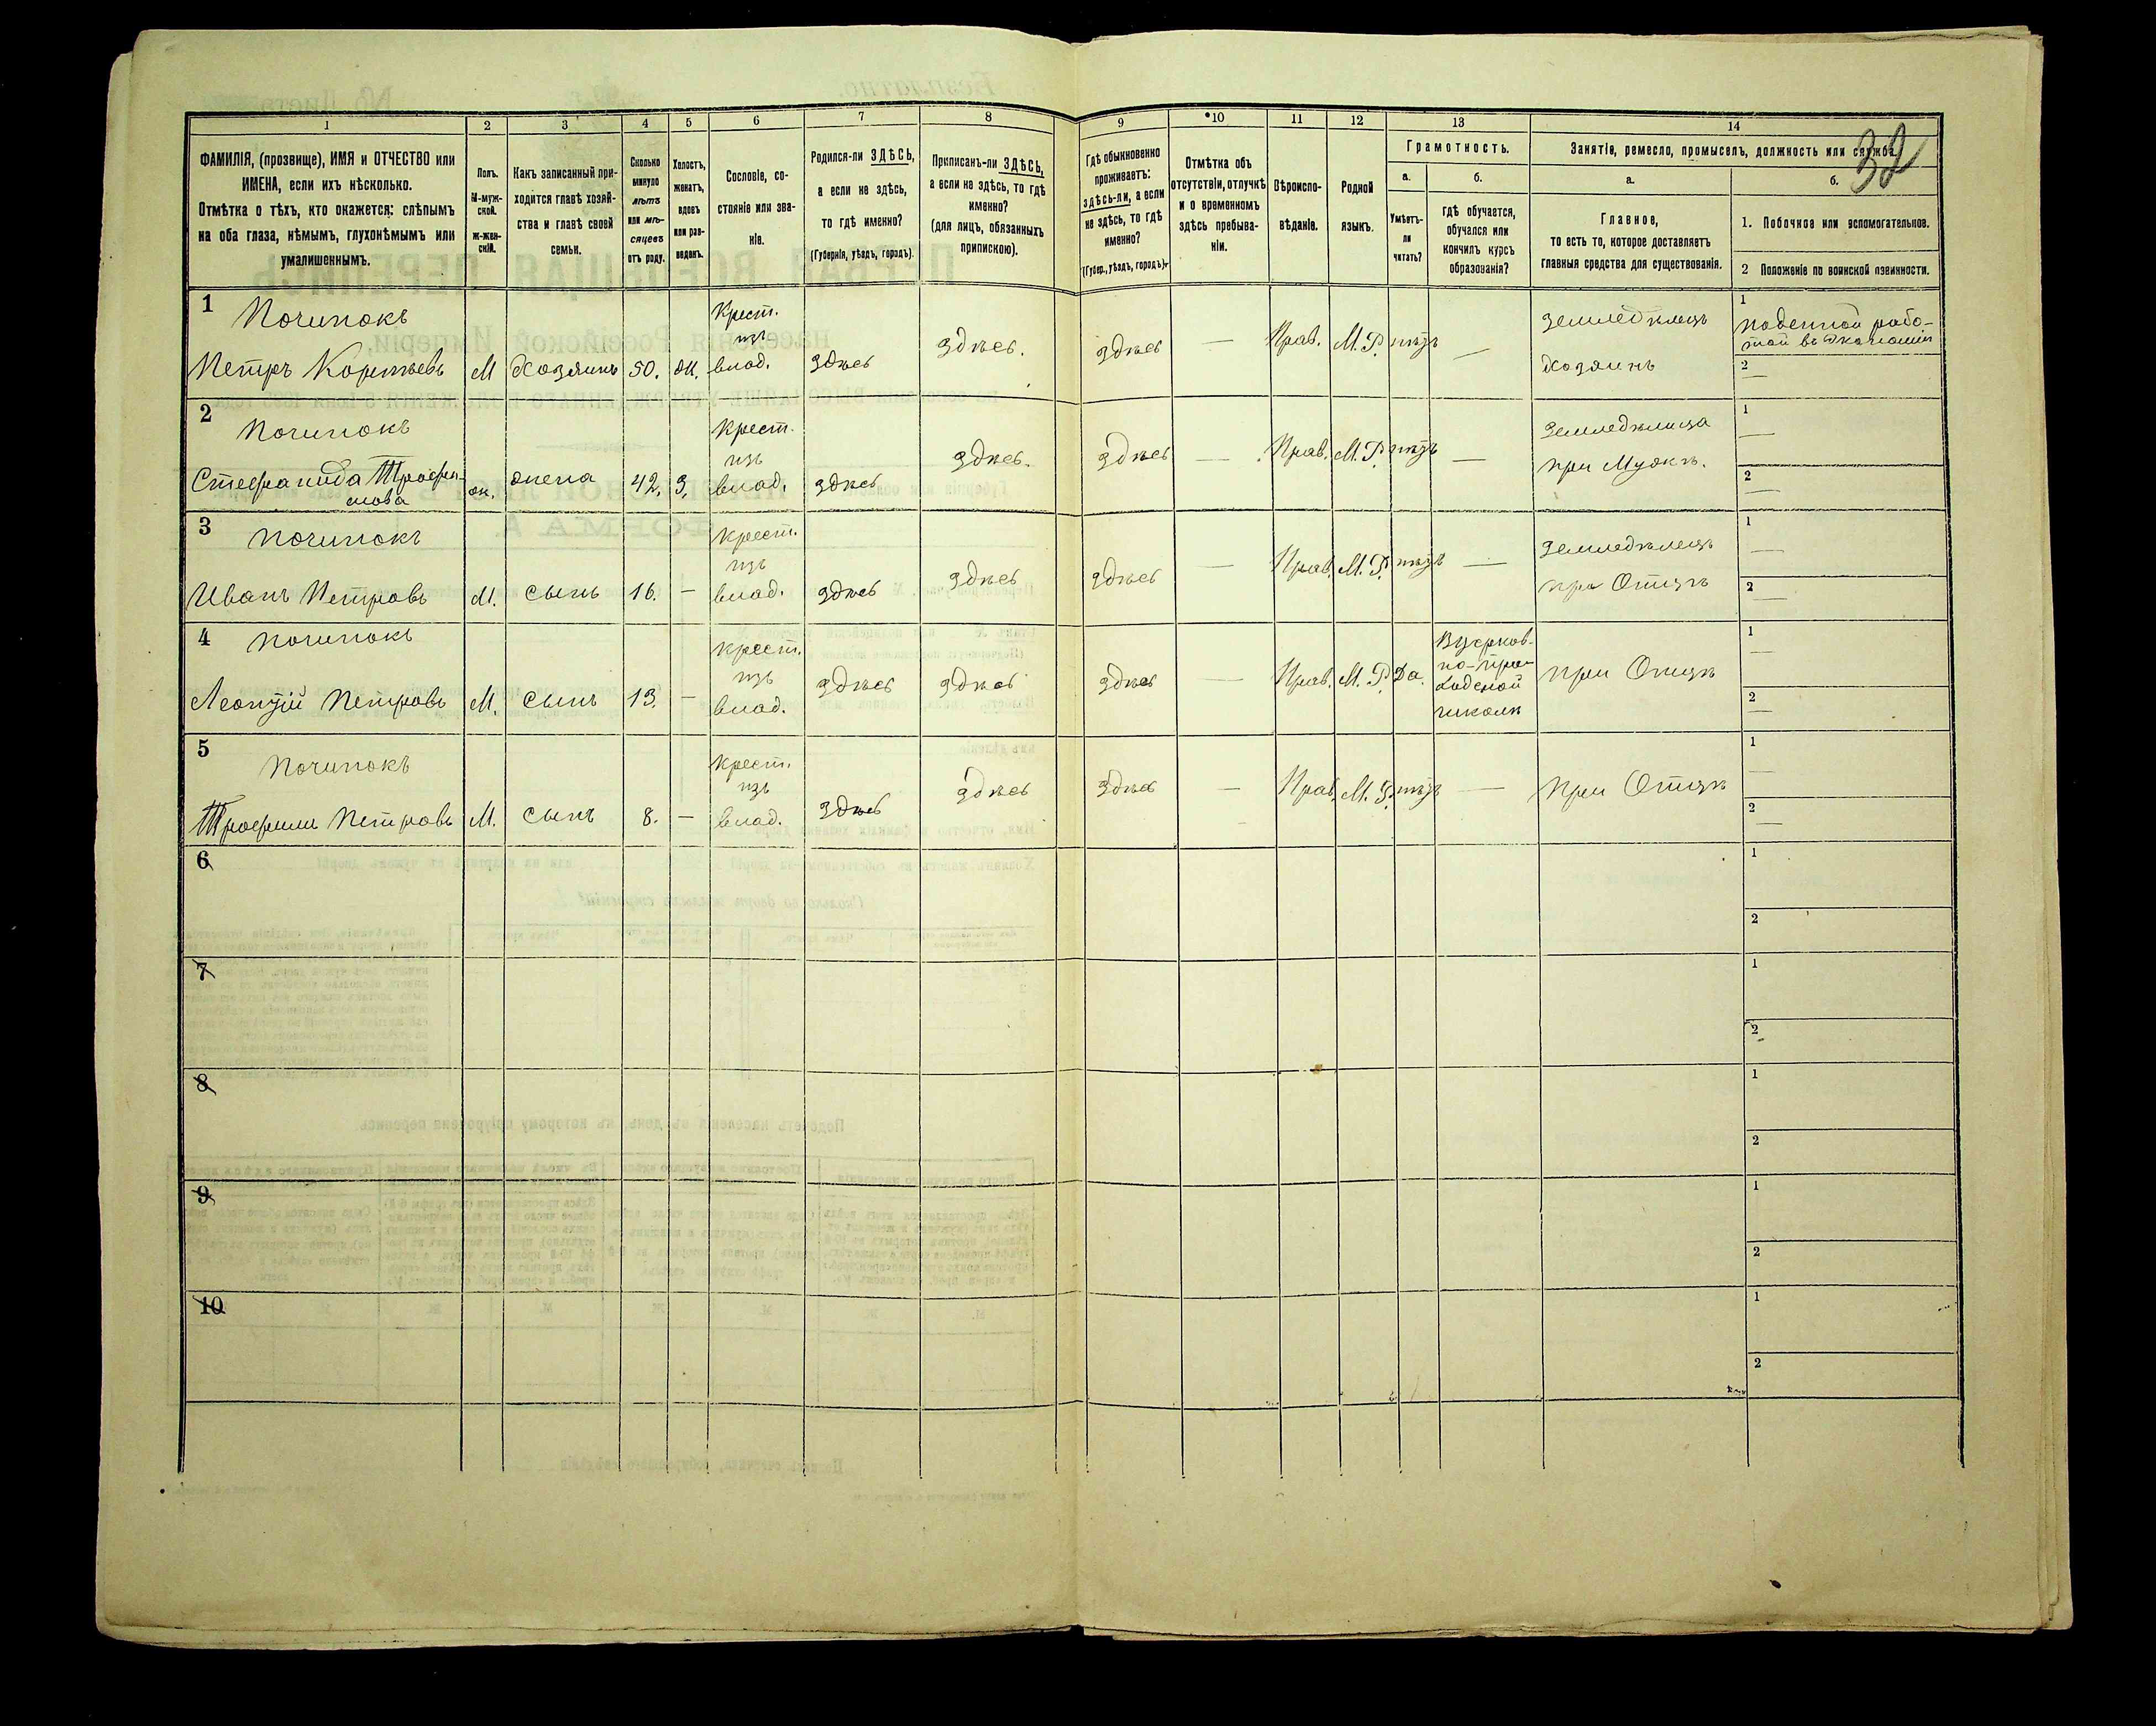 32
1 2 3 4 5 6 7 8 9 10 11 12 13 14
ФАМИЛІЯ, (прозвище), ИМЯ и ОТЧЕСТВО или
ИМЕНА, если ихъ нѣсколько.
Отмѣтка о тѣхъ, кто окажется: слѣпымъ
на оба глаза, нѣмымъ, глухонѣмымъ или
умалишеннымъ.
Полъ.
М-муж-
ской.
Ж-жен-
скій.
Какъ записанный при-
ходится главѣ хозяй-
ства и главѣ своей
семьи.
Сколько
минуло
лѣтъ
или мѣ-
сяцевъ
отъ роду.
Холостъ,
женатъ,
вдовъ
или раз-
веденъ.
Сословіе, со-
стояніе или зва-
ніе.
Родился-ли ЗДѢСЬ,
а если не здѣсь,
то гдѣ именно?
(Губернія, уѣздъ, городъ).
Приписанъ-ли ЗДѢСЬ,
а если не здѣсь, то гдѣ
именно?
(для лицъ, обязанныхъ
припискою).
Гдѣ обыкновенно
проживаетъ:
здѣсь-ли, а если
не здѣсь, то гдѣ
именно?
(Губер., уѣздъ, городъ).
Отмѣтка объ
отсутствіи, отлучкѣ
и о временномъ
здѣсь пребыва-
ніи.
Вѣроиспо-
вѣданіе.
Родной
языкъ.
Грамотность.
а.
Умѣетъ-
ли
читать?
б.
Гдѣ обучается,
обучался или
кончилъ курсъ
образованія?
Занятіе, ремесло, промыселъ, должность или служба.
а.
Главное,
то есть то, которое доставляетъ
главныя средства для существованія.
б.
1. Побочное или вспомогательное.
2 Положеніе по воинской повинности.
1 Починокъ
Петръ Корнѣевъ М Хозяинъ 50. ж. Крест. изъ влад. здѣсь здѣсь. здѣсь — Прав. М. Р. нѣтъ — Земледѣлецъ Хозяинъ
1 поденной рабо-
той въ экономіи
2 —
2 Починокъ
Стефанида Трофи-
мова ж. жена 42. З. Крест. изъ влад. здѣсь здѣсь. здѣсь — Прав. М. Р. нѣтъ — Земледѣлица при Мужѣ.
1 —
2 —
3 Починокъ
Иванъ Петровъ М. сынъ 16. — Крест. изъ влад. здѣсь здѣсь здѣсь — Прав. М. Р. нѣтъ — Земледѣлецъ при Отцѣ
1 —
2 —
4 Починокъ
Леонтій Петровъ М. сынъ 13. — Крест. изъ влад. здѣсь здѣсь здѣсь — Прав. М. Р. Да. Въ церков-
но-при-
ходской
школѣ
при Отцѣ
1 —
2 —
5 Починокъ
Трофимъ Петровъ М. сынъ 8. — Крест. изъ влад. здѣсь здѣсь здѣсь — Прав. М. Р. нѣтъ — При Отцѣ
1 —
2 —
6
1
2
7
1
2
8
1
2
9
1
2
10
1
2